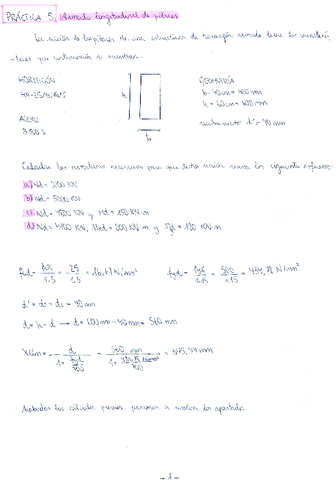 PRÁCTICA 5. Armado longitudinal de pilares
La sección de los pilares de una estructura de hormigón armado tiene las caracterís-
ticas que continuación se muestran:
HORMIGÓN
HA-25/
ACERO
B 500 S
h
b
GEOMETRÍA
b = 40 cm = 400 mm
h = 60 cm = 600 mm
recubrimiento d' = 40 mm
Calcular las armaduras necesarias para que dicha sección resista los siguientes esfuerzos:
a) Nd = KN
b) Nd = 5000 KN
c) Nd = KN y Md = 150 KN·m
d) Nd = KN, Mxd = 200 KN·m y Myd = 120 KN·m
fcd = fck / 1.5 = 25 / 1.5 = 16.67 N/mm²
fyd = fyk / 1.15 = 500 / 1.15 = 434,78 N/mm²
d' = = = 40 mm
d = h - d' → d = 600 mm - 40 mm = 560 mm
Xlim = d / 1 + fyd / 700 = 560 mm / 1 + 434,78 N/mm² / 700 = 345,44 mm
los cálculos previos, pasamos a resolver los apartados
- 1 -